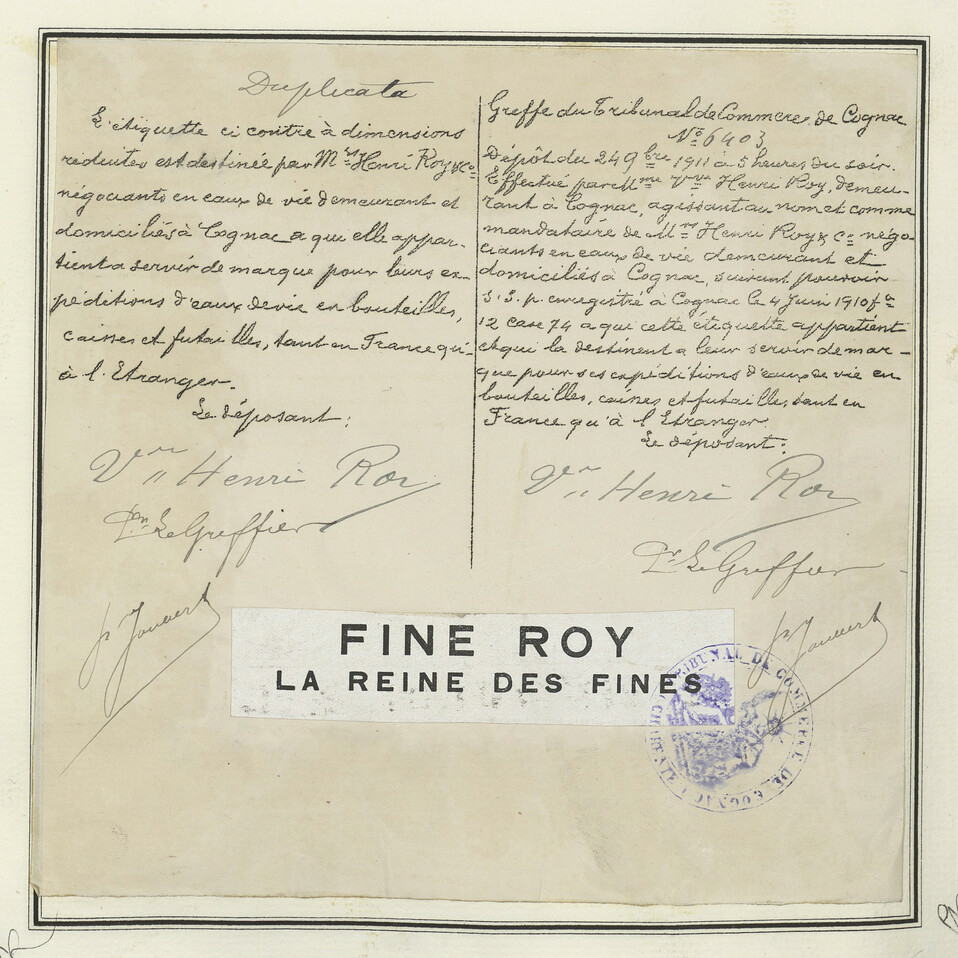 Duplicata
L'étiquette ci contre à dimensions
réduites est destinée par Mrs Henri Roy & Co
négociants en eaux de vie demeurant et
domiciliés à Cognac a qui elle appar-
tient a servir de marque pour leurs ex-
péditions d'eaux de vie en bouteilles,
caisses et futailles, tant en France qu'-
à l'Etranger.
Le déposant:
Vve Henri Roy
Pr Le Greffier
Greffe du Tribunal de Commerce de Cognac
No 6403
Dépôt du 24 9bre 1911 à 5 heures du soir.
Effectué par Mme Vve Henri Roy, demeu-
rant à Cognac, agissant au nom et comme
mandataire de Mrs Henri Roy & Co négo-
ciants en eaux de vie demeurant et
domiciliés à Cognac, suivant pouvoir
s.s.p. enregistré à Cognac le 4 Juin 1910 fo
12 case 74 a qui cette étiquette appartient
et qui la destinent a leur servir de mar-
que pour ses expéditions d'eaux de vie en
bouteilles, caisses et futailles, tant en
France qu'à l'Etranger.
Le déposant:
Vve Henri Roy
Pr Le Greffier
FINE ROY
LA REINE DES FINES
TRIBUNAL DE COMMERCE DE COGNAC